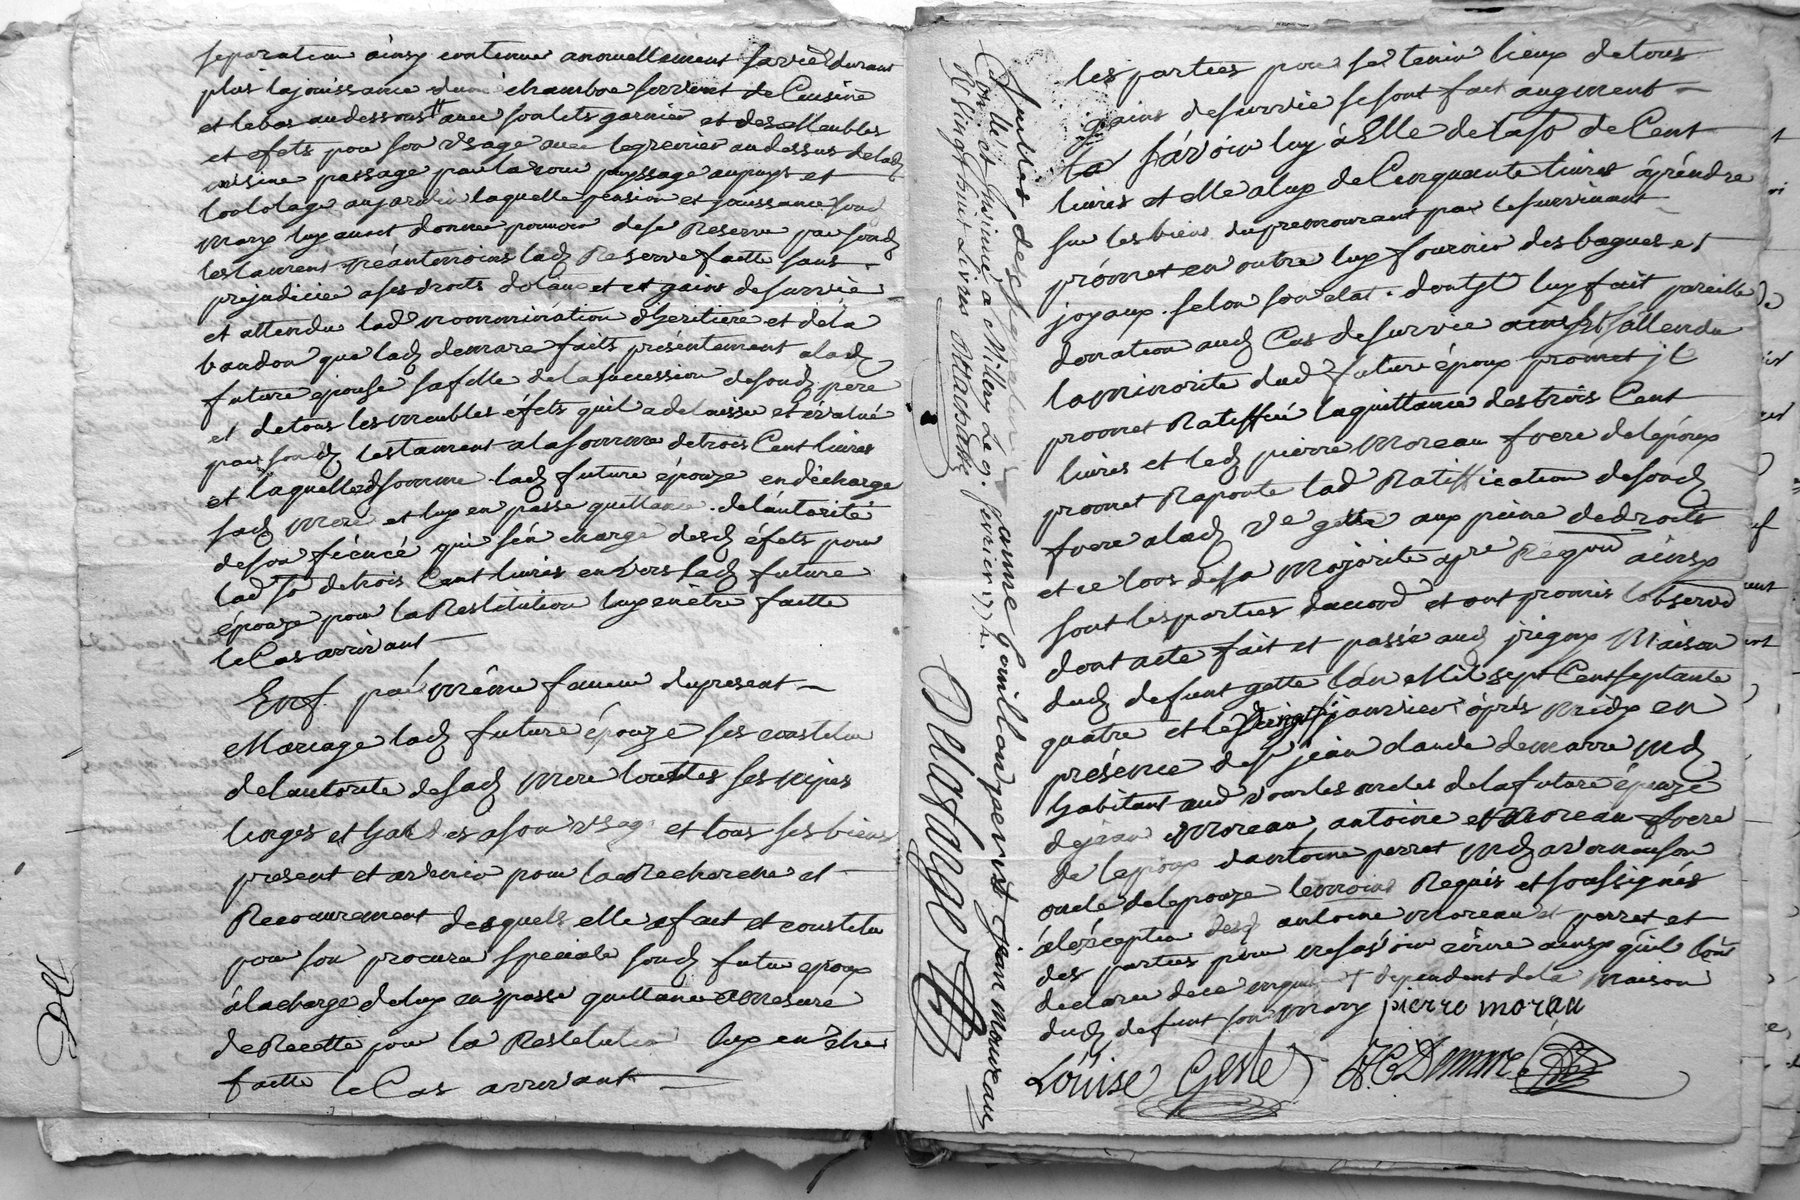 separation ainsy continuer annuellement sa vie durant
plus la jouissance d'une chambre servant de Cuisine
et le bas au dessous avec son lets garnier et des Meubles
et efets pour son usage avec le grenier au dessus de lad
cuisine passage par la cour puysage au puys et
au jardin laquelle pension et jouissance
mary luy auoit donné pouvoir de se Reserve par sond
testament néantmoins lad Reserve faitte sans
prejudicier a ses droits dotaux et et gains de survie
et attendu lad nommination d'heritiere et de la
bandon que lad demare faits présentement a lad
future epouse sa fille de la succession de sond pere
et de tous les meubles éfets quil a delaisse et évalué
par sond testament a la somme de trois Cent livres
et laquelle d somme lad future épouze en décharge
sad mere et luy en passe quittance de l'autorité
de son fiencé qui s'en charge desd éfets pour
lad so de trois Cent livres envers lad future
épouze pour la Restitution luy en être faitte
le Cas arrivant
Enf par même faveur du present
Mariage lad future épouze ses constitu
de l'autorité de sad mere touttes ses nipes
linges et hardes a son usage et tous ses biens
present et avenir pour la Recherche et
Recouvrement desquels elle a fait et constitu
pour son procureur speciale sond futur epoux
à la charge de luy en passer quittance a mesure
de Recette pour la Restitution luy en être
faitte le Cas arrivant
les parties pour se tenir lieux de tous
gains de survie se sont fait augment
to sávoir luy à Elle de la so de Cent
livres et elle a luy de Cinquante livres à prendre
sur les biens du premourant par le survivant
prómet en outre luy fournir des bagues et
joyaux selon son etat dont jl luy fait pareille
donnation aud Cas de survie attendu
la minorité dud futur époux promet jl
promet Ratiffié la quittance des trois Cent
livres et led pierre Moreau frere de l'époux
promet Raporte lad Ratiffication de sond
frere a lad ve gette aux peine de droits
et ce lors de sa Majorité ainsy
sont les parties d'accord et ont promis l'observé
dont acte fait et passé aud jrigny Maison
dud defunt gette l'an Mil sept Cent septante
quatre et le vingt janvier après midy en
présence de sr jean claude demarre Md
habitant aud vourles oncles de la future épouze
de jean Moreau, antoine Moreau frere
de l'epoux d'antoine perret Md
oncle de l'epouze temoins Requis et soussignés
à l'exception desd antoine moreau et perret et
des parties pour ne sçavoir écrire ainsy qu'il
declaré de ce enquis + dependent de la maison
dud defunt son mary pierre morau
Louise Geste JC Demare
Controllé et Insinué a Millery Le 9. fevrier 1774.
Reçu vingt huit Livres
anne gouilloud jean moureau
Delestange